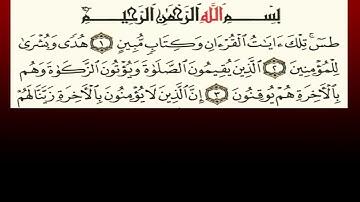 بِسْمِ اللَّهِ الرَّحْمَٰنِ الرَّحِيمِ
طسٓ ۚ تِلْكَ ءَايَٰتُ الْقُرْءَانِ وَكِتَابٍ مُّبِينٍ ﴿١﴾ هُدًى وَبُشْرَىٰ
لِلْمُؤْمِنِينَ ﴿٢﴾ الَّذِينَ يُقِيمُونَ الصَّلَوٰةَ وَيُؤْتُونَ الزَّكَوٰةَ وَهُم
بِالْءَاخِرَةِ هُمْ يُوقِنُونَ ﴿٣﴾ إِنَّ الَّذِينَ لَا يُؤْمِنُونَ بِالْءَاخِرَةِ زَيَّنَّا لَهُمْ